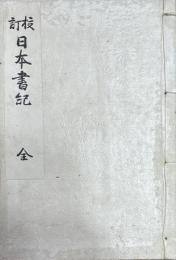 校訂日本書記 全